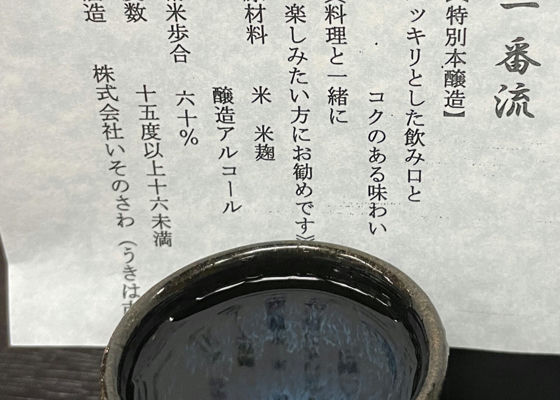 一番流
特別本醸造】
ッキリとした飲み口と
コクのある味わい
料理と一緒に
楽しみたい方にお勧めです》
材料
米 米麹
醸造アルコール
米歩合
六十%
数
十五度以上十六未満
造
株式会社いそのさわ（うきは市